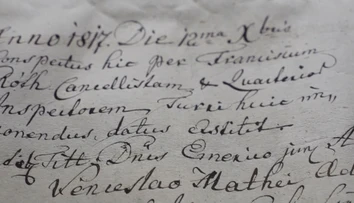 Anno 1817. Die 12ma Xbris
Conspectus hic per Franciscum
Róth Cancellistam & Quartirior
Inspectorem Turri huic
ponendus, datus exstitit.
Titt. Dnus Emerico jun
Venceslao Mathei Ad